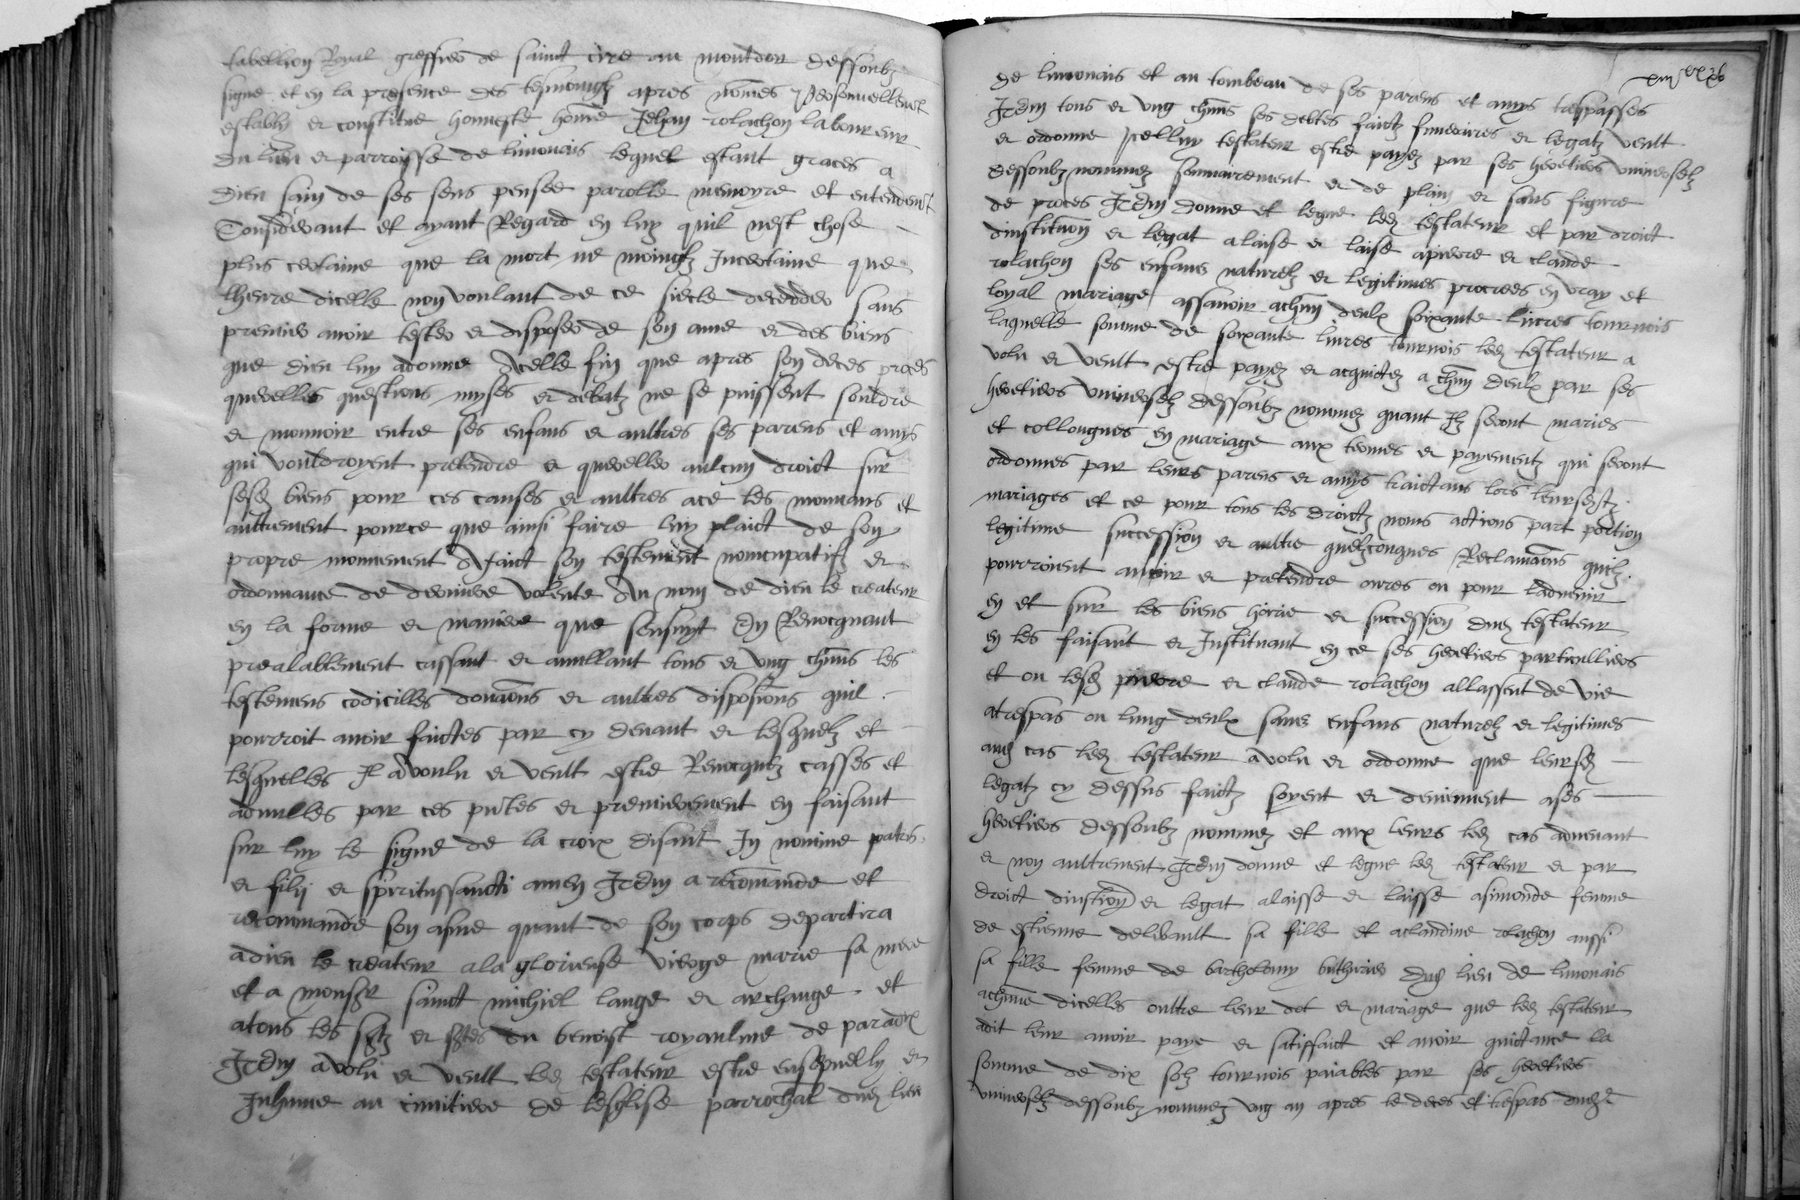 tabellion Royal greffier de sainct cire au montdor dessoubz
signe et en la presence des tesmoingz apres nommes personnellement
estably et constitue honneste home Jehan rolachon laboureur
du lieu et parroisse de limonais lequel estant graces a
dieu sain de ses sens pensee parolle memoyre et entendement
Considerant et ayant Regard en luy quil nest chose
plus certaine que la mort ne moingz Incertaine que
lheure dicelle non voulant de ce siecle deceder sans
premier avoir teste et dispose de son ame et des biens
que dieu luy a donne Acelle fin que apres son deces proces
querelles questions noyses et debatz ne se puissent souldre
et mouvoir entre ses enfans et aultres ses parens et amys
qui vouldroyent pretendre et quereller aulcun droict sur
sesd biens pour ces causes et aultres ace les mouvans et
aultrement pource que ainsi faire luy plaict de son
propre mouvement A faict son testement noncupatif et
ordonnance de derniere volente Au nom de dieu le createur
en la forme et maniere que sensuyt En Revocquant
prealablement cassant et anullant tous et ung chuns les
testemens codicilles donaons et aultres dispositions quil
pourroit avoir faictes par cy devant et lesquelz et
lesquelles Il a voulu et veult estre Revocquez casses et
adnulles par ces pntes et premierement en faisant
sur luy le signe de la croix disant In nomine patris
et filij et spiritussancti amen Item a recomande et
recommande son asme quant de son corps departira
a dieu le createur a la glorieuse vierge marie sa mere
et a monsr sainct michiel lange et archange et
atous les sctz et sctes du benoist royaulme de paradix
Item a volu et veult led testateur estre ensepvelly et
Inhume au cimitiere de lesglise parrochal dud lieu
xiiii xx xv
de limonais et au tombeau de ses parens et amys trespasses
Item tous et ung chuns ses debtes faictz funeraires et legatz veult
et ordonne Icelluy testateur estre payez par ses heretiers universelz
dessoubz nommez sommairement et de plain et sans figure
de proces Item donne et legue led testateur et par droict
dinstitution et legat a laise et laise a pierre et claude
rolachon ses enfans naturelz et legitimes procrees en vray et
loyal mariage assavoir achun deulx soixante livres tournois
laquelle somme de soixante livres tournois led testateur a
volu et veult estre payez et acquictez a chun deulx par ses
heretiers universelz dessoubz nommez quant Ilz seront maries
et collouques en mariage aux termes et payementz qui seront
ordonnes par leurs parens et amys traictans lors leursdtz
mariages et ce pour tous les droictz noms actions part portion
legitime succession et aultre quelzconques Reclamaons quilz
pourroient avoir et pretendre ores ou pour ladvenir
en et sur les biens hoirie et succession dud testateur
en les faisant et Instituant en ce ses heretiers particulliers
et ou lesd pierre et claude rolachon allassent de vie
a trespas ou lung deulx sans enfans naturelz et legitimes
aud cas led testateur a volu et ordonne que leursd
legatz cy dessus faictz soyent et deviennent a ses
heretiers dessoubz nommez et aux leurs led cas advenant
et non aultrement Item donne et legue led testateur et par
droict dinstion et legat a laisse et laisse a simonde femme
de estienne delivault sa fille et a claudine rolachon aussi
sa fille femme de bartholomy buthirier dud lieu de limonais
achune dicelles oultre leur dot et mariage que led testateur
a dit leur avoir paye et satisfaict et avoir quictance la
somme de dix solz tournois paiables par ses heretiers
universelz dessoubz nommez ung an apres le deces et trespas dud